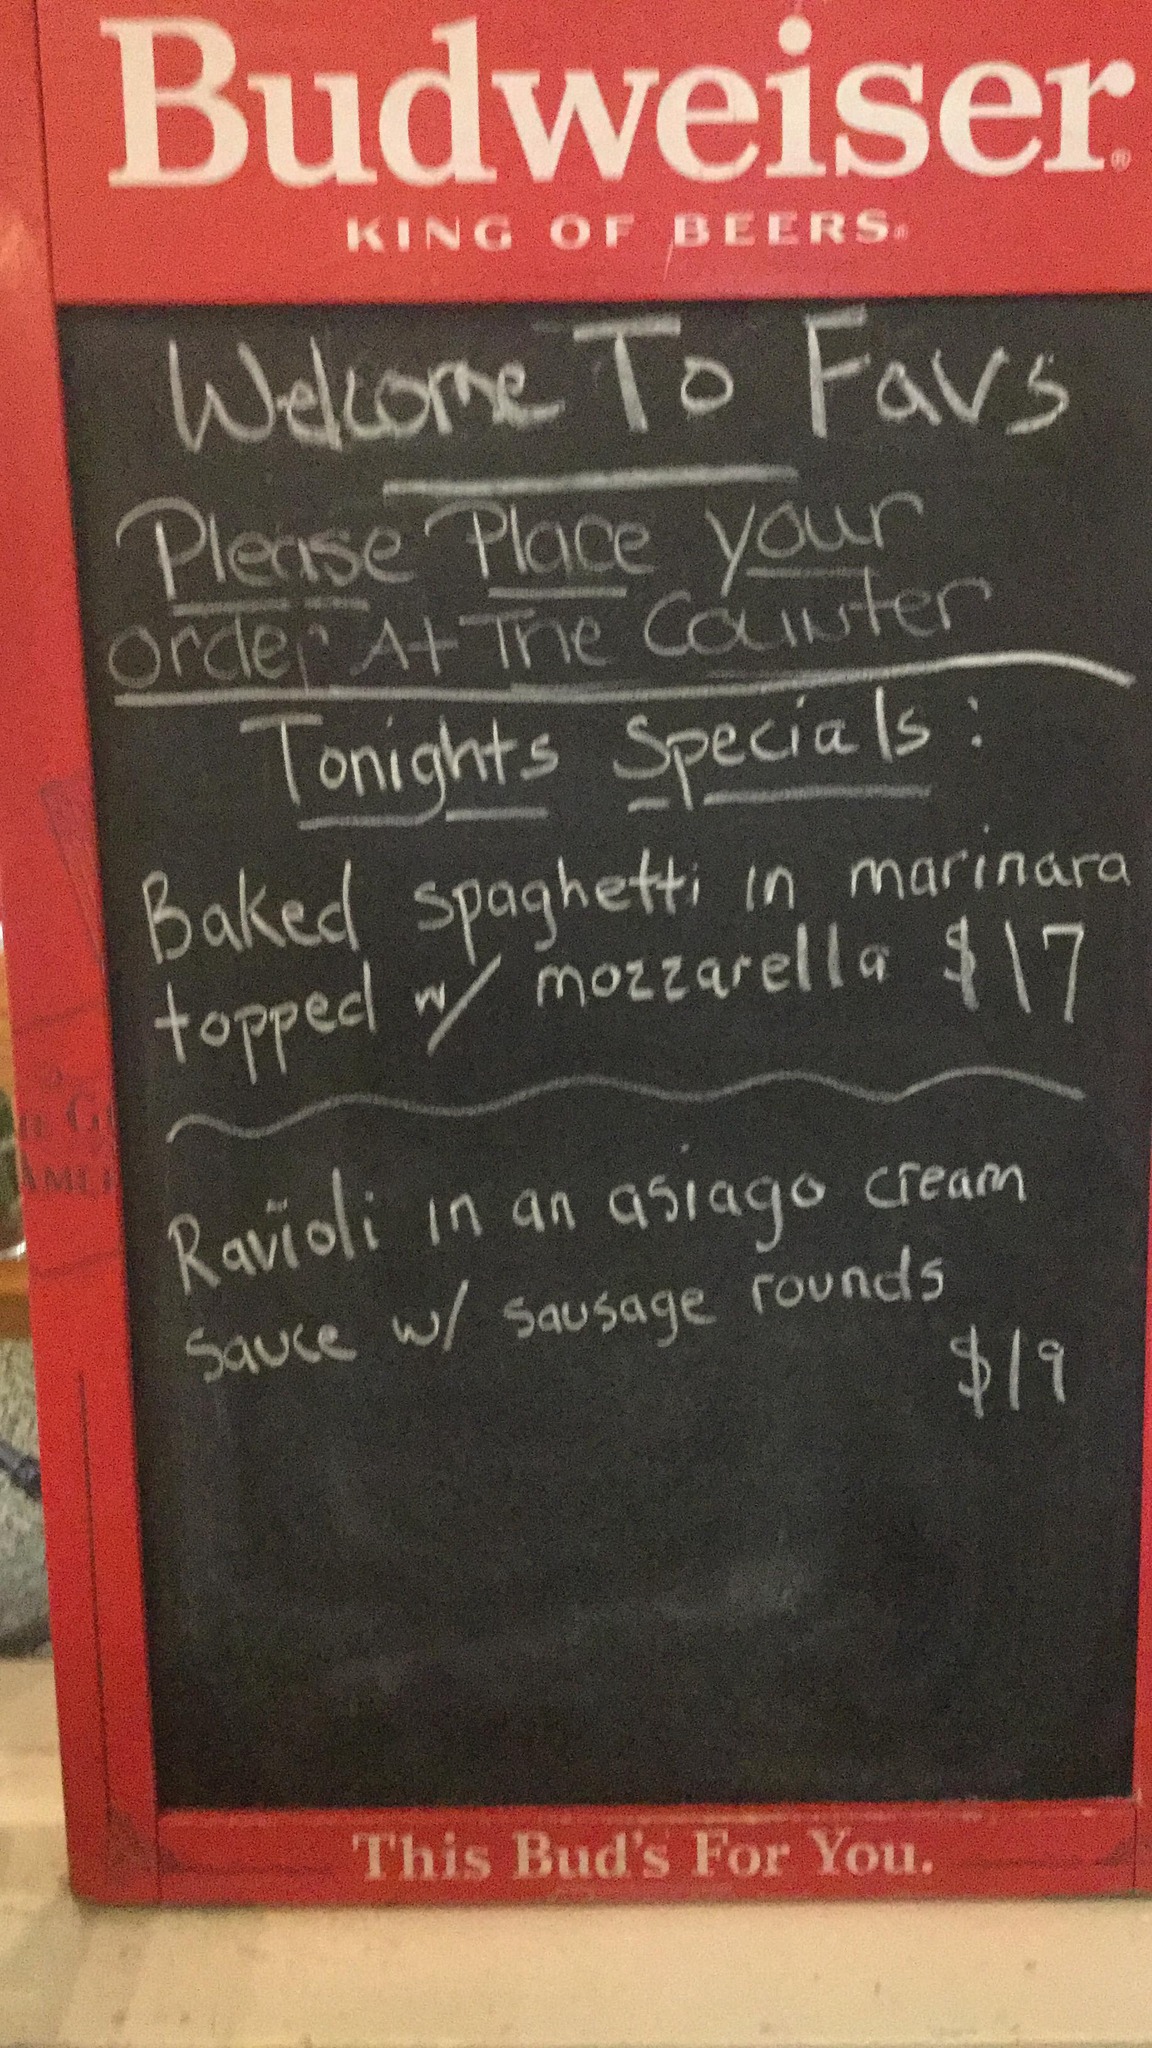 Budweiser®
KING OF BEERS®
Welcome To Favs
Please Place your
order At The Counter
Tonights Specials:
Baked spaghetti in marinara
topped w/ mozzarella $17
Ravioli in an asiago cream
sauce w/ sausage rounds
$19
This Bud's For You.